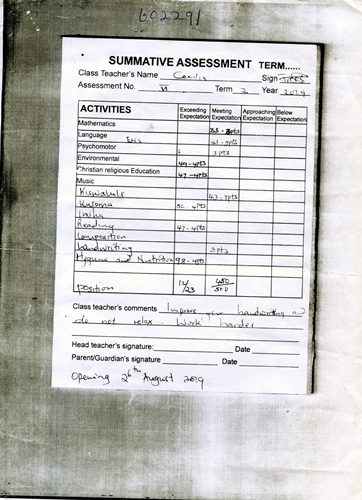 602291
SUMMATIVE ASSESSMENT TERM......
Class Teacher's Name Cecilia Sign
Assessment No. VI Term 2 Year 2019
ACTIVITIES Exceeding Expectation Meeting Expectation Approaching Expectation Below Expectation
Mathematics
Language Eng 3pts
Psychomotor 3pts
Environmental 49-4pts
Christian religious Education 47-4pts
Music
Kiswahili 43-3pts
Kusoma 50-4pts
Insha
Reading 47-4pts
Composition
handwriting 3pts
Hygiene and Nutrition 98-4pts
position 12/23 450/500
Class teacher's comments Improve your handwriting and
do not relax. Work harder
Head teacher's signature: Date
Parent/Guardian's signature Date
Opening 26th August 2019